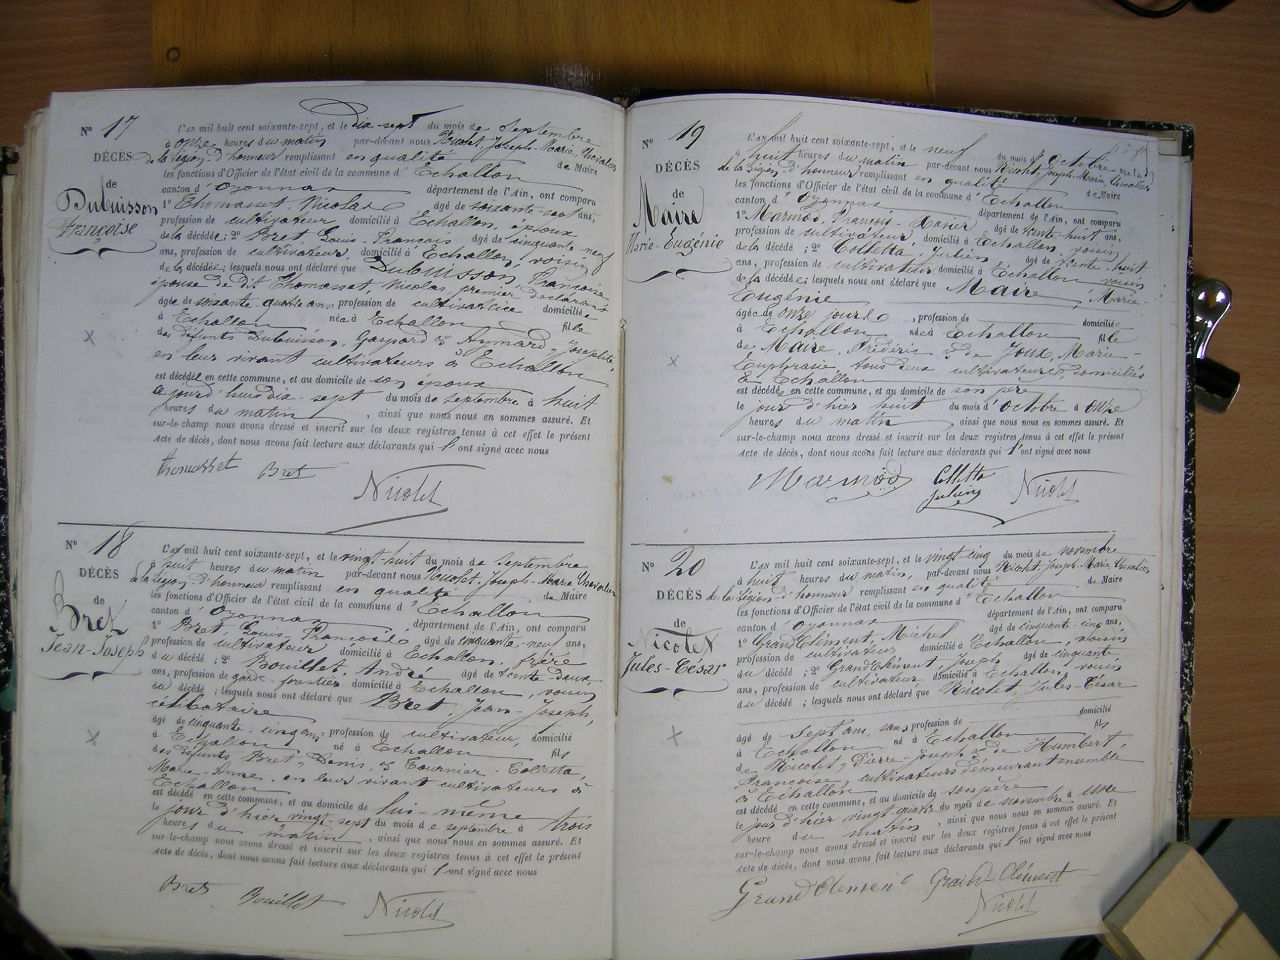 N° 17
DÉCÈS
de
Dubuisson
Françoise
L'an mil huit cent soixante-sept, et le dix-sept du mois de Septembre
à onze heures du matin par-devant nous Nicolet, Joseph-Marie Chevalier
de la Légion d'honneur remplissant en qualité de Maire
les fonctions d'Officier de l'état civil de la commune d'Echallon
canton d'Oyonnax département de l'Ain, ont comparu
1° Thomasset, Nicolas âgé de soixante-sept ans,
profession de cultivateur domicilié à Echallon, époux
de la décédée; 2° Bret Louis-François âgé de cinquante-neuf
ans, profession de cultivateur, domicilié à Echallon, voisin
de la décédée; lesquels nous ont déclaré que Dubuisson, Françoise,
épouse de dit Thomasset, Nicolas, premier déclarant
âgée de soixante-quatre ans profession de cultivatrice domiciliée
à Echallon née à Echallon fille
des défunts Dubuisson, Gaspard & Aymard, Josephte,
en leur vivant cultivateurs à Echallon
est décédée en cette commune, et au domicile de son époux
le jour d'hui dix-sept du mois de septembre à huit
heures du matin, ainsi que nous nous en sommes assuré. Et
sur-le-champ nous avons dressé et inscrit sur les deux registres tenus à cet effet le présent
acte de décès, dont nous avons fait lecture aux déclarants qui l'ont signé avec nous
Thomasset Bret Nicolet
N° 18
DÉCÈS
de
Bret
Jean-Joseph
L'an mil huit cent soixante-sept, et le vingt-huit du mois de Septembre
à huit heures du matin par-devant nous Nicolet, Joseph-Marie Chevalier
de la Légion d'honneur remplissant en qualité de Maire
les fonctions d'Officier de l'état civil de la commune d'Echallon
canton d'Oyonnax département de l'Ain, ont comparu
1° Bret Louis-François âgé de cinquante-neuf ans,
profession de cultivateur domicilié à Echallon, frère
du décédé; 2° Bouillet, André âgé de trente-deux
ans, profession de garde-forestier domicilié à Echallon, voisin
du décédé; lesquels nous ont déclaré que Bret, Jean-Joseph,
célibataire
âgé de cinquante-cinq ans, profession de cultivateur, domicilié
à Echallon né à Echallon fils
des défunts Bret, Denis, & Tournier-Colletta,
Marie-Anne, en leur vivant cultivateurs à
Echallon
est décédé en cette commune, et au domicile de lui-même
le jour d'hier vingt-sept du mois de septembre à trois
heures du matin, ainsi que nous nous en sommes assuré. Et
sur-le-champ nous avons dressé et inscrit sur les deux registres tenus à cet effet le présent
acte de décès, dont nous avons fait lecture aux déclarants qui l'ont signé avec nous
Bret Bouillet Nicolet
N° 19
DÉCÈS
de
Maire
Marie-Eugénie
L'an mil huit cent soixante-sept, et le neuf du mois d'Octobre
à huit heures du matin par-devant nous Nicolet, Joseph-Marie Chevalier
de la Légion d'honneur remplissant en qualité de Maire
les fonctions d'Officier de l'état civil de la commune d'Echallon
canton d'Oyonnax département de l'Ain, ont comparu
1° Marmod, François-Xavier âgé de vingt-huit ans,
profession de cultivateur, domicilié à Echallon, voisin
de la décédée; 2° Colletta, Julien âgé de trente-huit
ans, profession de cultivateur domicilié à Echallon, voisin
de la décédée; lesquels nous ont déclaré que Maire, Marie-
Eugénie
âgée de onze jours, profession de domiciliée
à Echallon née à Echallon fille
de Maire, Frédéric & de Joux, Marie-
Euphrasie, tous deux cultivateurs, domiciliés
à Echallon
est décédée en cette commune, et au domicile de son père
le jour d'hier huit du mois d'octobre à onze
heures du matin, ainsi que nous nous en sommes assuré. Et
sur-le-champ nous avons dressé et inscrit sur les deux registres tenus à cet effet le présent
acte de décès, dont nous avons fait lecture aux déclarants qui l'ont signé avec nous
Marmod Colletta Julien Nicolet
N° 20
DÉCÈS
de
Nicolet
Jules-César
L'an mil huit cent soixante-sept, et le vingt-cinq du mois de novembre
à huit heures du matin, par-devant nous Nicolet, Joseph-Marie, Chevalier
de la Légion d'honneur remplissant en qualité de Maire
les fonctions d'Officier de l'état civil de la commune d'Echallon
canton d'Oyonnax département de l'Ain, ont comparu
1° GrandClément, Michel âgé de cinquante-cinq ans,
profession de cultivateur domicilié à Echallon, voisin
du décédé; 2° GrandClément, Joseph âgé de cinquante
ans, profession de cultivateur domicilié à Echallon, voisin
du décédé; lesquels nous ont déclaré que Nicolet, Jules-César
âgé de sept ans, sans profession de domicilié
à Echallon né à Echallon fils
de Nicolet, Pierre-Joseph & de Humbert,
Françoise, cultivateurs demeurant ensemble
à Echallon
est décédé en cette commune, et au domicile de son père
le jour d'hier vingt-quatre du mois de novembre à une
heure du matin, ainsi que nous nous en sommes assuré. Et
sur-le-champ nous avons dressé et inscrit sur les deux registres tenus à cet effet le présent
acte de décès, dont nous avons fait lecture aux déclarants qui l'ont signé avec nous
Grand Clément Grand-Clément
Nicolet